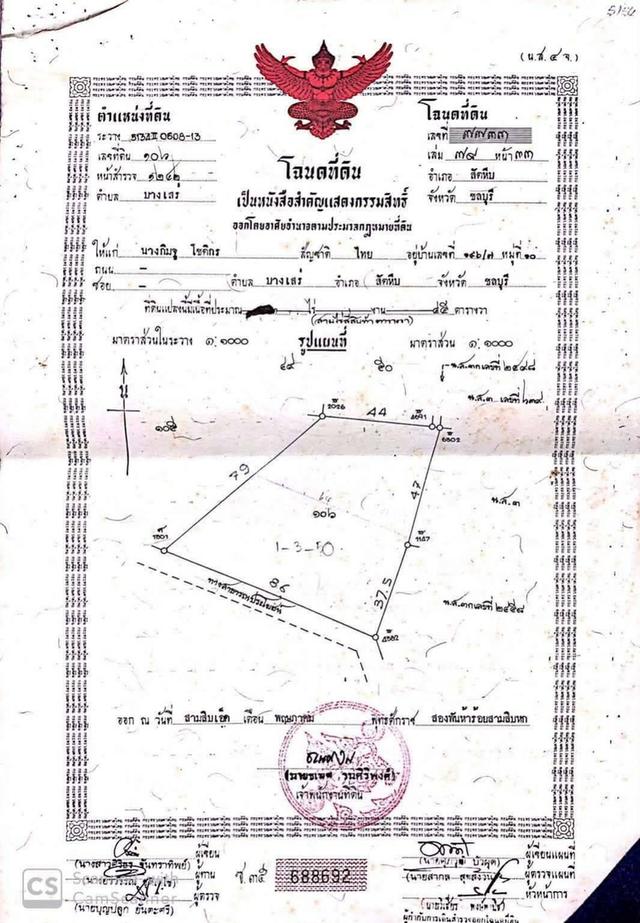 (น.ส.๔ จ.)
ตำแหน่งที่ดิน
ระวาง 5134 II 0608-13
เลขที่ดิน ๑๐๖
หน้าสำรวจ ๑๒๔๒
ตำบล บางเสร่
โฉนดที่ดิน
เลขที่ ๗๗๓๓
เล่ม ๗๘ หน้า ๓๓
อำเภอ สัตหีบ
จังหวัด ชลบุรี
โฉนดที่ดิน
เป็นหนังสือสำคัญแสดงกรรมสิทธิ์
ออกโดยอาศัยอำนาจตามประมวลกฎหมายที่ดิน
ให้แก่ นางกิมจู โชติกร สัญชาติ ไทย อยู่บ้านเลขที่ ๑๙๖/๗ หมู่ที่ ๑๐
ถนน -
ซอย - ตำบล บางเสร่ อำเภอ สัตหีบ จังหวัด ชลบุรี
ที่ดินแปลงนี้มีเนื้อที่ประมาณ ไร่ งาน ๔๕ ตารางวา
มาตราส่วนในระวาง ๑:๑๐๐๐ รูปแผนที่ มาตราส่วน ๑:๑๐๐๐
๔๙ ๕๐ น.ส.๓ก เลขที่ ๒๔๔๘
น.ส.๓ เลขที่
น
2026 44 4691 6802
๑๐๕
79
47
น.ส.๓
๑๐๖
1801
1-3-50
1147
86
37.5
ทางสาธารณประโยชน์
น.ส.๓ก เลขที่ ๒๔๕๘
4582
ออก ณ วันที่ สามสิบเอ็ด เดือน พฤษภาคม พุทธศักราช สองพันห้าร้อยสามสิบหก
เจ้าพนักงานที่ดิน
ผู้เขียน
ผู้ทาน
ผู้ตรวจ
ช.๓๕ 688692
ผู้เขียนแผนที่
ผู้ตรวจแผนที่
หัวหน้าการ
CS Scanned with
CamScanner